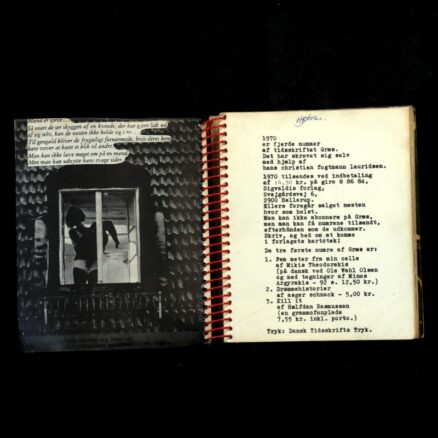 Mand er sjove
Så snart de ser skyggen af en kvinde, der har gjort lidt ud
af sig selv, kan de næsten ikke holde sig i ro
Til gengæld bliver de frygteligt fornærmede, hvis deres kone
bare vover at kaste et blik til anden
Man kan ikke lave meget om på en mand
Men man kan udnytte hans svage sider
1970
er fjerde nummer
af tidsskriftet Græs.
Det har skrevet sig selv
med hjælp af
hans christian fogtmann lauridsen.
1970 tilsendes ved indbetaling
af kr. på giro 8 86 84,
Sigvaldis forlag,
Svejgårdsvej 6,
2900 Hellerup.
Ellers foregår salget næsten
hvor som helst.
Man kan ikke abonnere på Græs,
men man kan få numrene tilsendt,
efterhånden som de udkommer.
Skriv, og bed om at komme
i forlagets kartotek!
De tre første numre af Græs er:
1. Fem meter fra min celle
af Mikis Theodorakis
(på dansk ved Ole Wahl Olsen
og med tegninger af Minos
Argyrakis - 92 s. 12,50 kr.)
2. Drømmehistorier
af asger schnack - 5,00 kr.
3. Kill it
af Halfdan Rasmussen
(en grammofonplade
7,55 kr. inkl. porto.)
Tryk: Dansk Tidsskrifts Tryk.